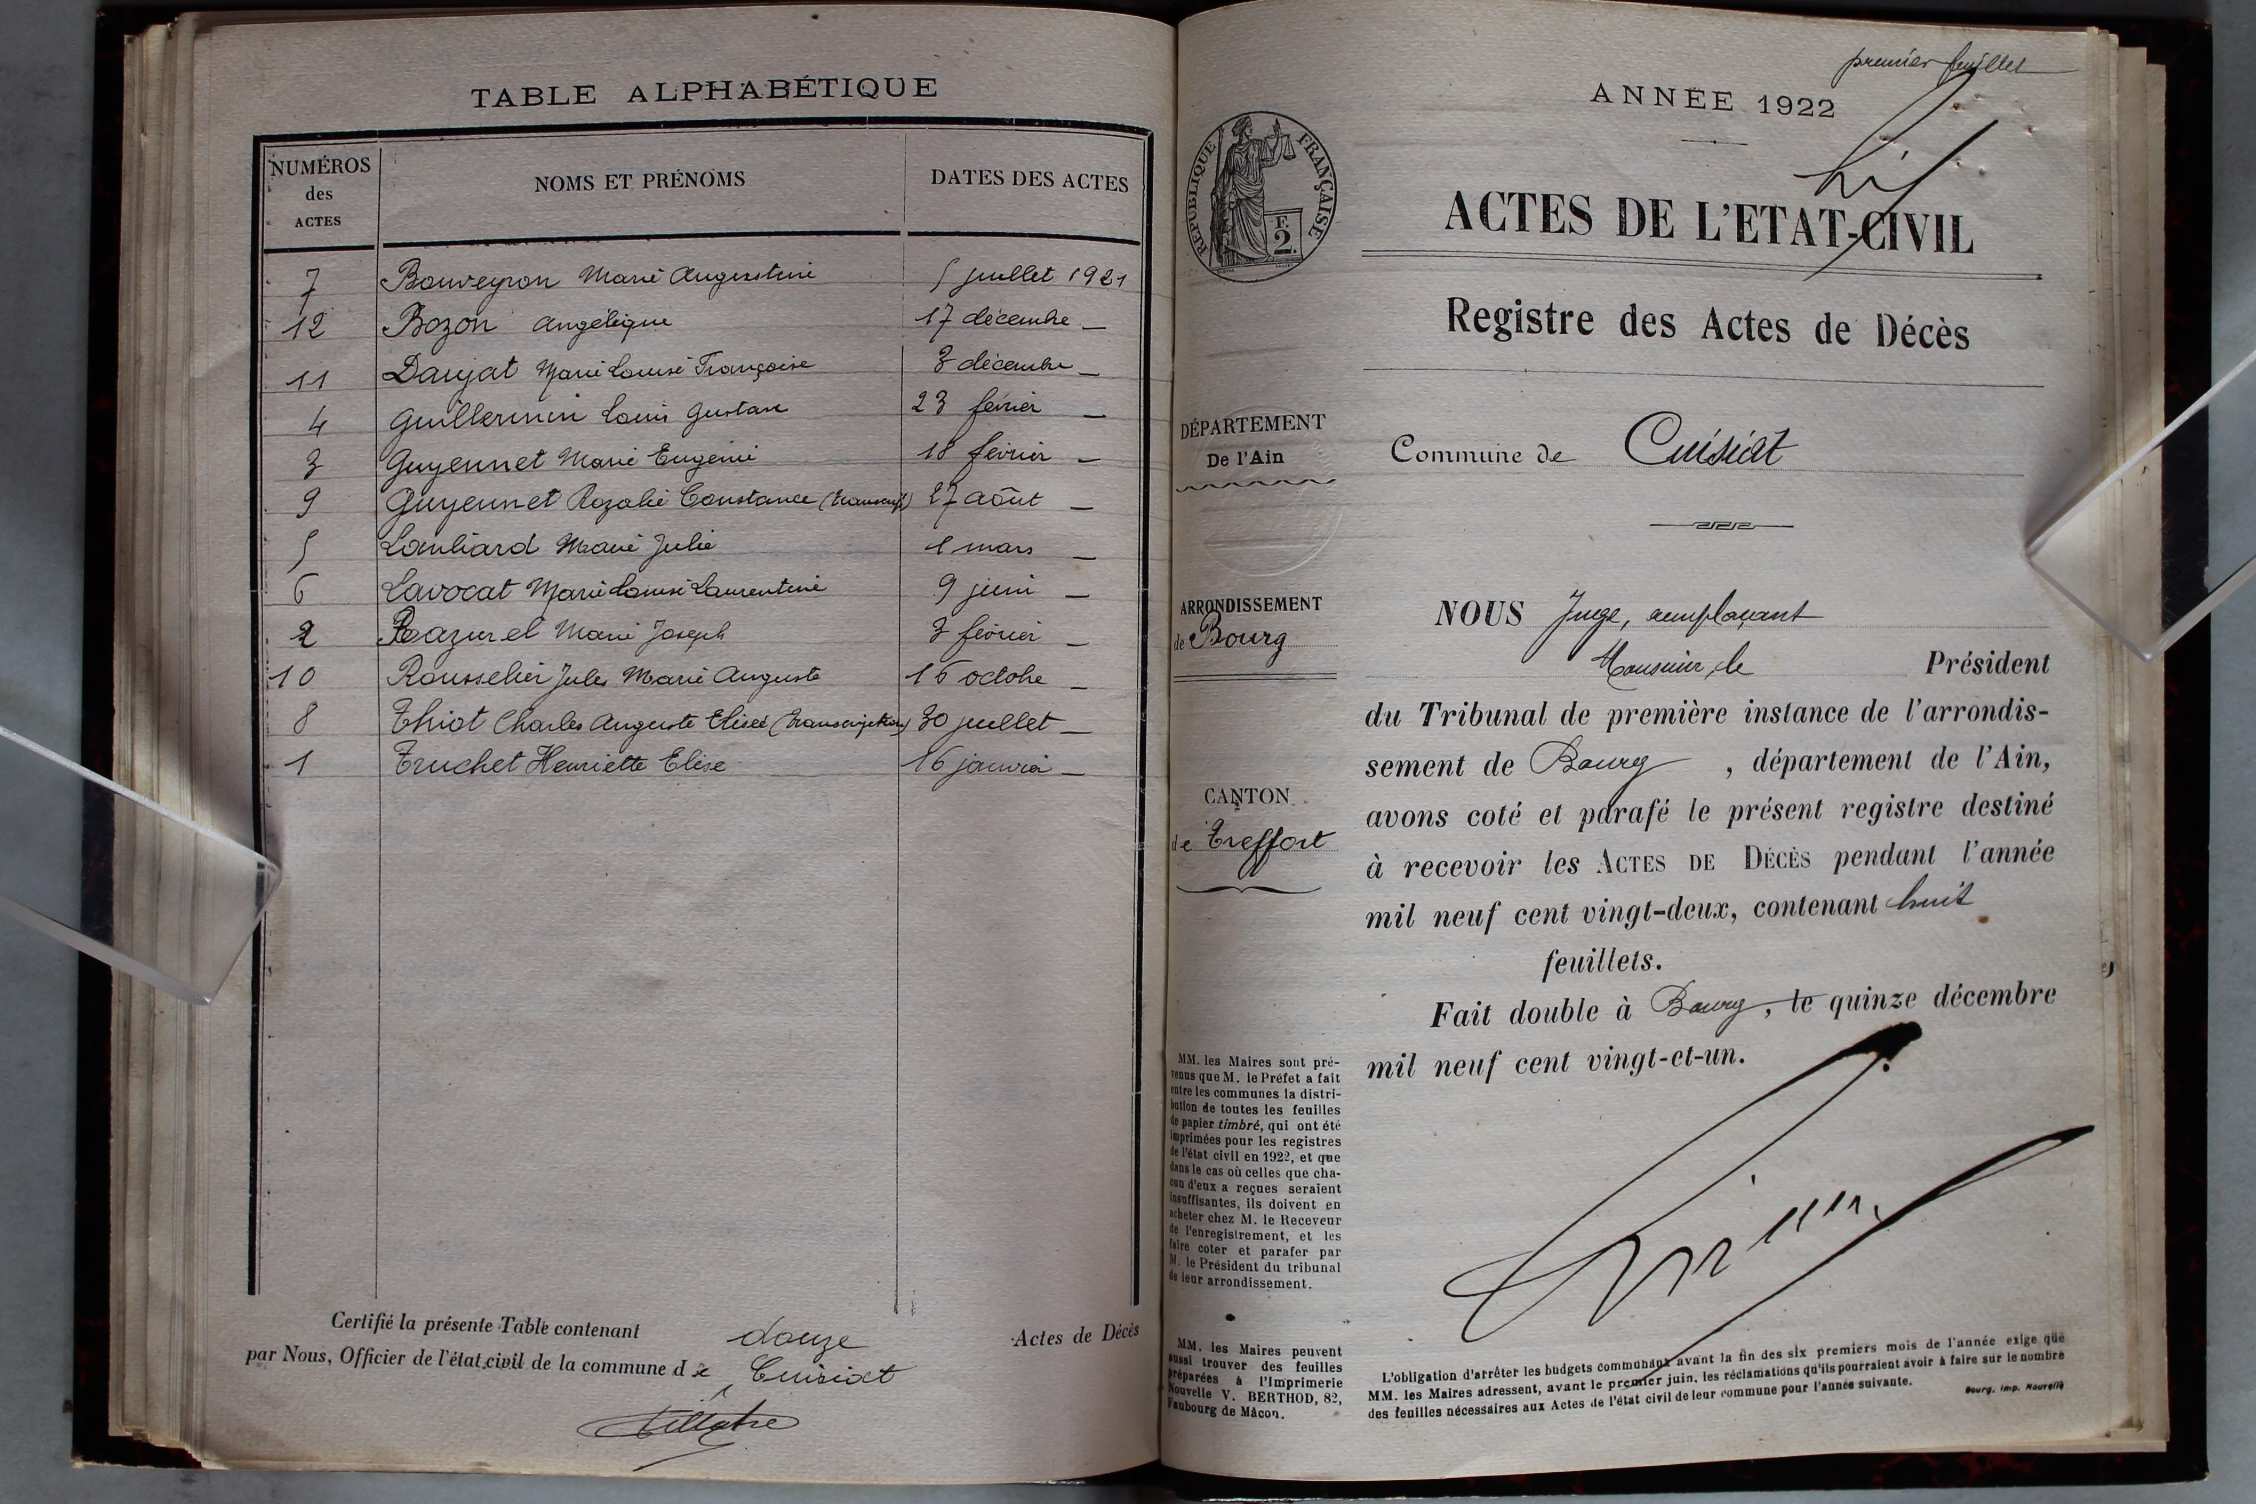 TABLE ALPHABÉTIQUE
NUMÉROS des ACTES NOMS ET PRÉNOMS DATES DES ACTES
7 Bouveyron Marie Augustine 5 juillet 1921
12 Bozon Angélique 17 décembre —
11 Daujat Marie Louise Françoise 3 décembre —
4 Guillermin Louis Gustave 23 février —
3 Guyennet Marie Eugénie 18 février —
9 Guyennet Rozalie Constance (transcrip) 27 août —
5 Lombard Marie Julie 1 mars —
6 Lavocat Marie Louise Laurentine 9 juin —
2 Razurel Marie Joseph 3 février —
10 Rousselier Jules Marie Auguste 16 octobre —
8 Thiot Charles Auguste Elisée (transcription) 30 juillet —
1 Truchet Henriette Elise 16 janvier —
Certifié la présente Table contenant douze Actes de Décès
par Nous, Officier de l'état civil de la commune de Cuisiat
premier feuillet
ANNÉE 1922
RÉPUBLIQUE FRANÇAISE
F. 2.
ACTES DE L'ETAT-CIVIL
Registre des Actes de Décès
DÉPARTEMENT
De l'Ain
Commune de Cuisiat
ARRONDISSEMENT
de Bourg
CANTON
de Treffort
NOUS Juge, remplaçant
Monsieur le Président
du Tribunal de première instance de l'arrondis-
sement de Bourg, département de l'Ain,
avons coté et parafé le présent registre destiné
à recevoir les ACTES DE DÉCÈS pendant l'année
mil neuf cent vingt-deux, contenant huit
feuillets.
Fait double à Bourg, le quinze décembre
mil neuf cent vingt-et-un.
MM. les Maires sont pré-
venus que M. le Préfet a fait
entre les communes la distri-
bution de toutes les feuilles
de papier timbré, qui ont été
imprimées pour les registres
de l'état civil en 1922, et que
dans le cas où celles que cha-
cun d'eux a reçues seraient
insuffisantes, ils doivent en
acheter chez M. le Receveur
de l'enregistrement, et les
faire coter et parafer par
M. le Président du tribunal
de leur arrondissement.
MM. les Maires peuvent
aussi trouver des feuilles
préparées à l'Imprimerie
Nouvelle V. BERTHOD, 82,
Faubourg de Mâcon.
L'obligation d'arrêter les budgets communaux avant la fin des six premiers mois de l'année exige que
MM. les Maires adressent, avant le premier juin, les réclamations qu'ils pourraient avoir à faire sur le nombre
des feuilles nécessaires aux Actes de l'état civil de leur commune pour l'année suivante.
Bourg, Imp. Nouvelle